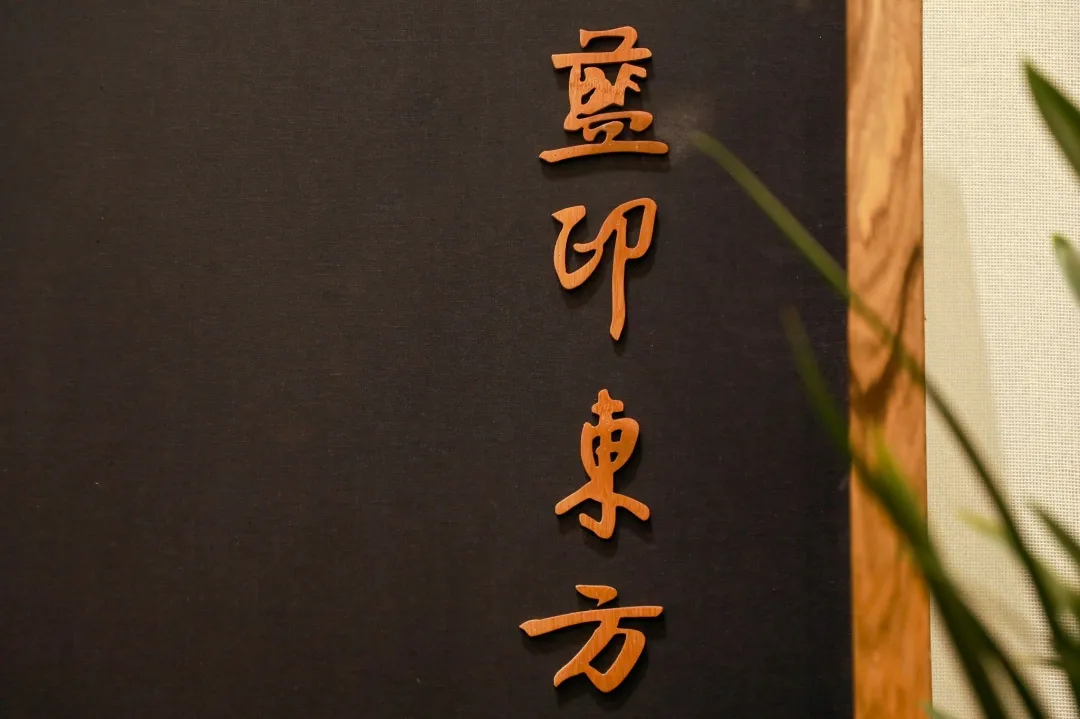 藍印東方